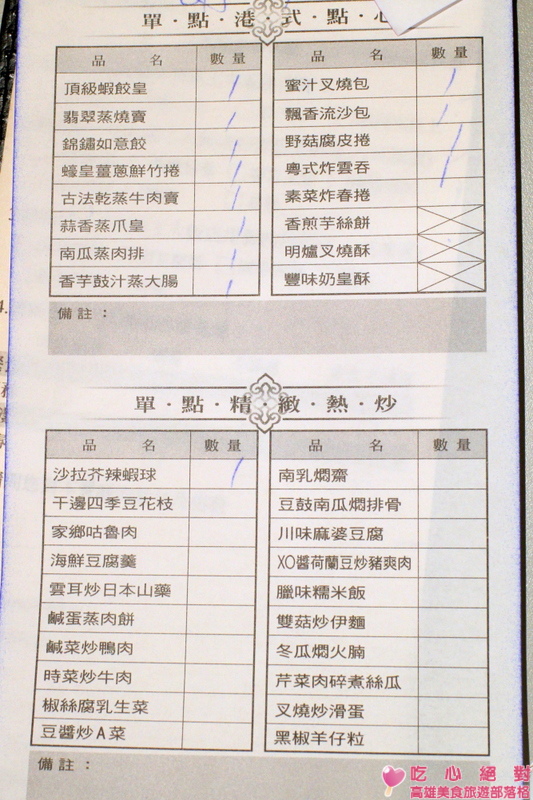 單·點·港·式·點·心
品名 數量
頂級蝦餃皇
翡翠蒸燒賣
錦鏽如意餃
蠔皇薑蔥鮮竹捲
古法乾蒸牛肉賣
蒜香蒸爪皇
南瓜蒸肉排
香芋鼓汁蒸大腸
品名 數量
蜜汁叉燒包
飄香流沙包
野菇腐皮捲
粵式炸雲吞
素菜炸春捲
香煎芋絲餅
明爐叉燒酥
豐味奶皇酥
備註：
單·點·精·緻·熱·炒
品名 數量
沙拉芥辣蝦球
干邊四季豆花枝
家鄉咕魯肉
海鮮豆腐羹
雲耳炒日本山藥
鹹蛋蒸肉餅
鹹菜炒鴨肉
時菜炒牛肉
椒絲腐乳生菜
豆醬炒A菜
品名 數量
南乳燜齋
豆鼓南瓜燜排骨
川味麻婆豆腐
XO醬荷蘭豆炒豬爽肉
臘味糯米飯
雙菇炒伊麵
冬瓜燜火腩
芹菜肉碎煮絲瓜
叉燒炒滑蛋
黑椒羊仔粒
備註：
吃心絕對
高雄美食旅遊部落格